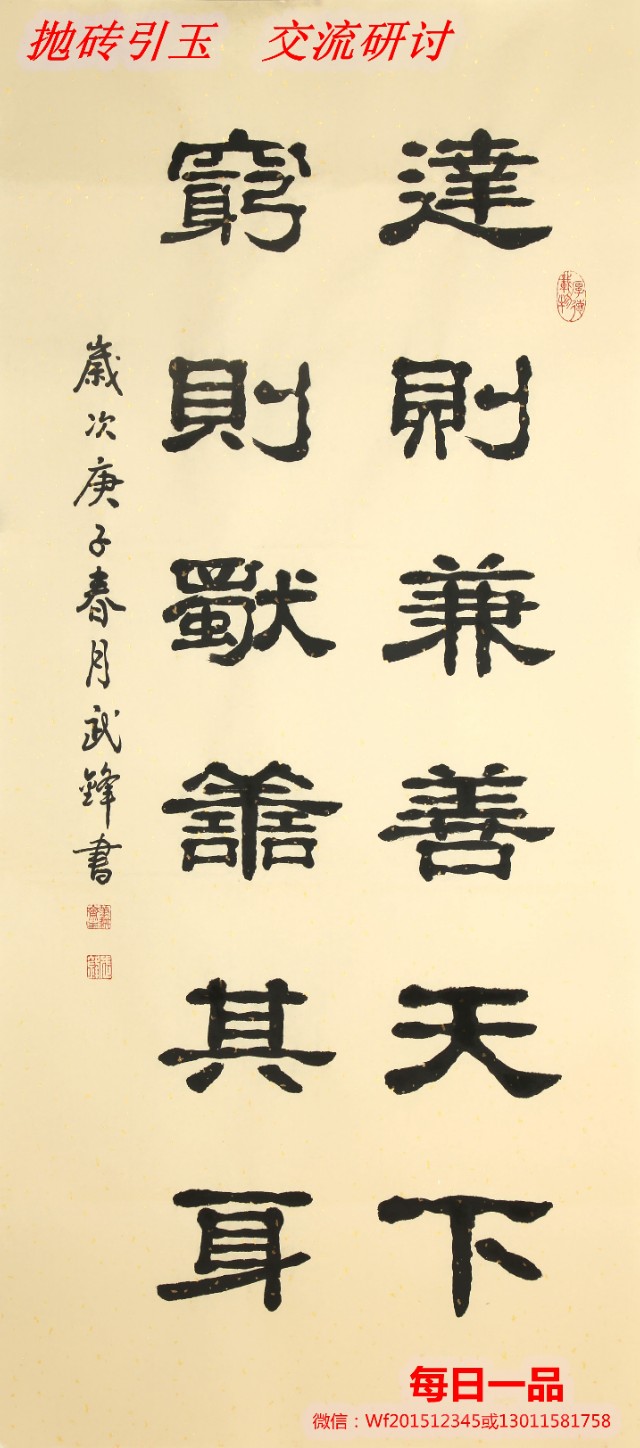 抛砖引玉 交流研讨
厚德載物
達則兼善天下
窮則獨善其身
歲次庚子春月武鋒書
每日一品
微信：Wf201512345或13011581758